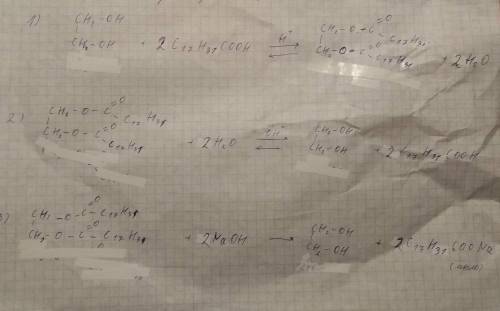 1) CH₂-OH
CH₂-OH + 2 C₁₇H₃₁COOH ⇄ H⁺ CH₂-O-C=O C₁₇H₃₁
CH₂-O-C=O C₁₇H₃₁ + 2H₂O
2) CH₂-O-C=O C₁₇H₃₁
CH₂-O-C=O C₁₇H₃₁ + 2H₂O ⇄ CH₂-OH
CH₂-OH + 2 C₁₇H₃₁COOH
3) CH₂-O-C=O-C₁₇H₃₁
CH₂-O-C=O-C₁₇H₃₁ + 2NaOH → CH₂-OH
CH₂-OH + 2C₁₇H₃₁COONa
(мыло)